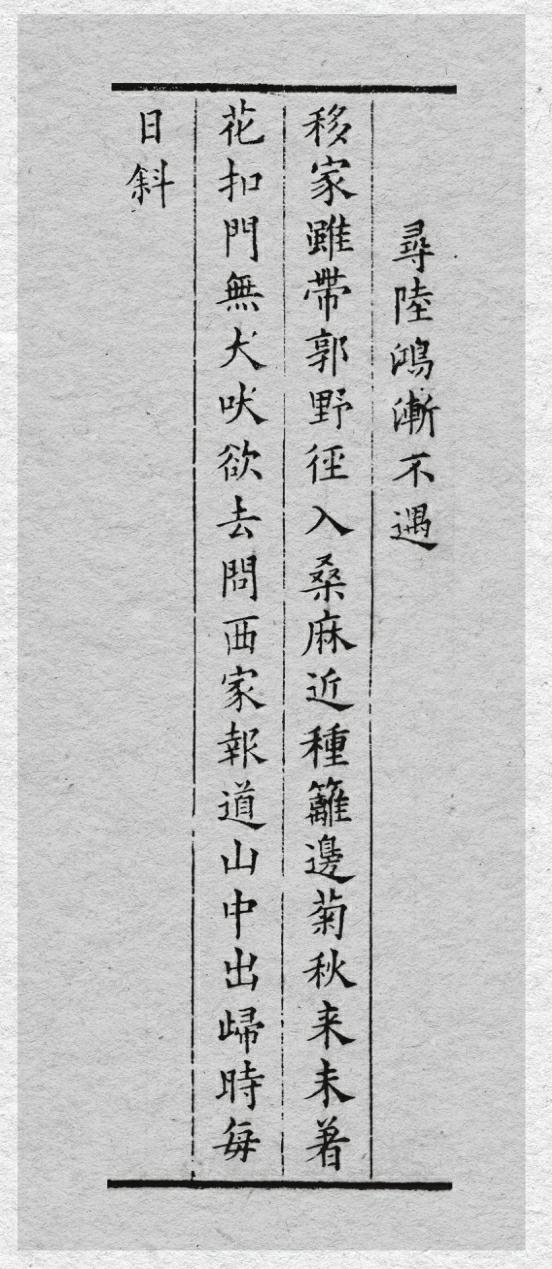 尋陸鴻漸不遇
移家雖帶郭野徑入桑麻近種籬邊菊秋来未着
花扣門無犬吠欲去問西家報道山中出歸時每
日斜